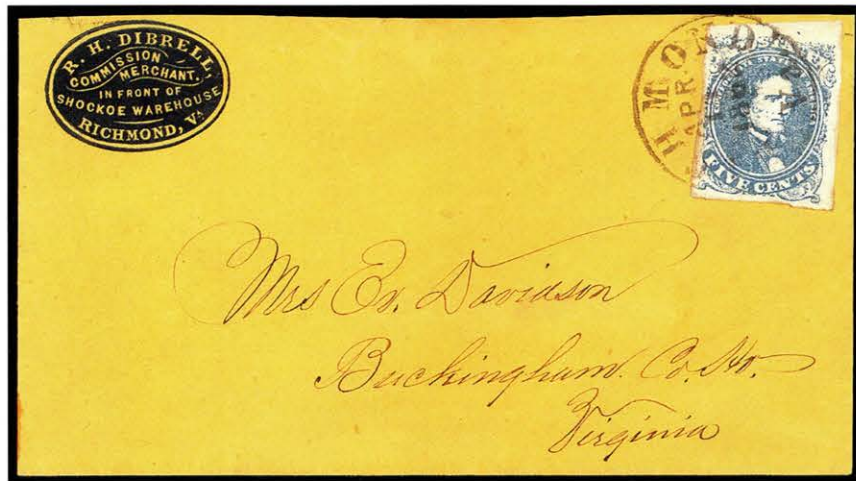 R. H. DIBRELL,
COMMISSION
MERCHANT,
IN FRONT OF
SHOCKOE WAREHOUSE
RICHMOND, VA
HMOND
APR
FIVE CENTS
Mrs Ev. Davidson
Buckingham. Co. Ho.
Virginia